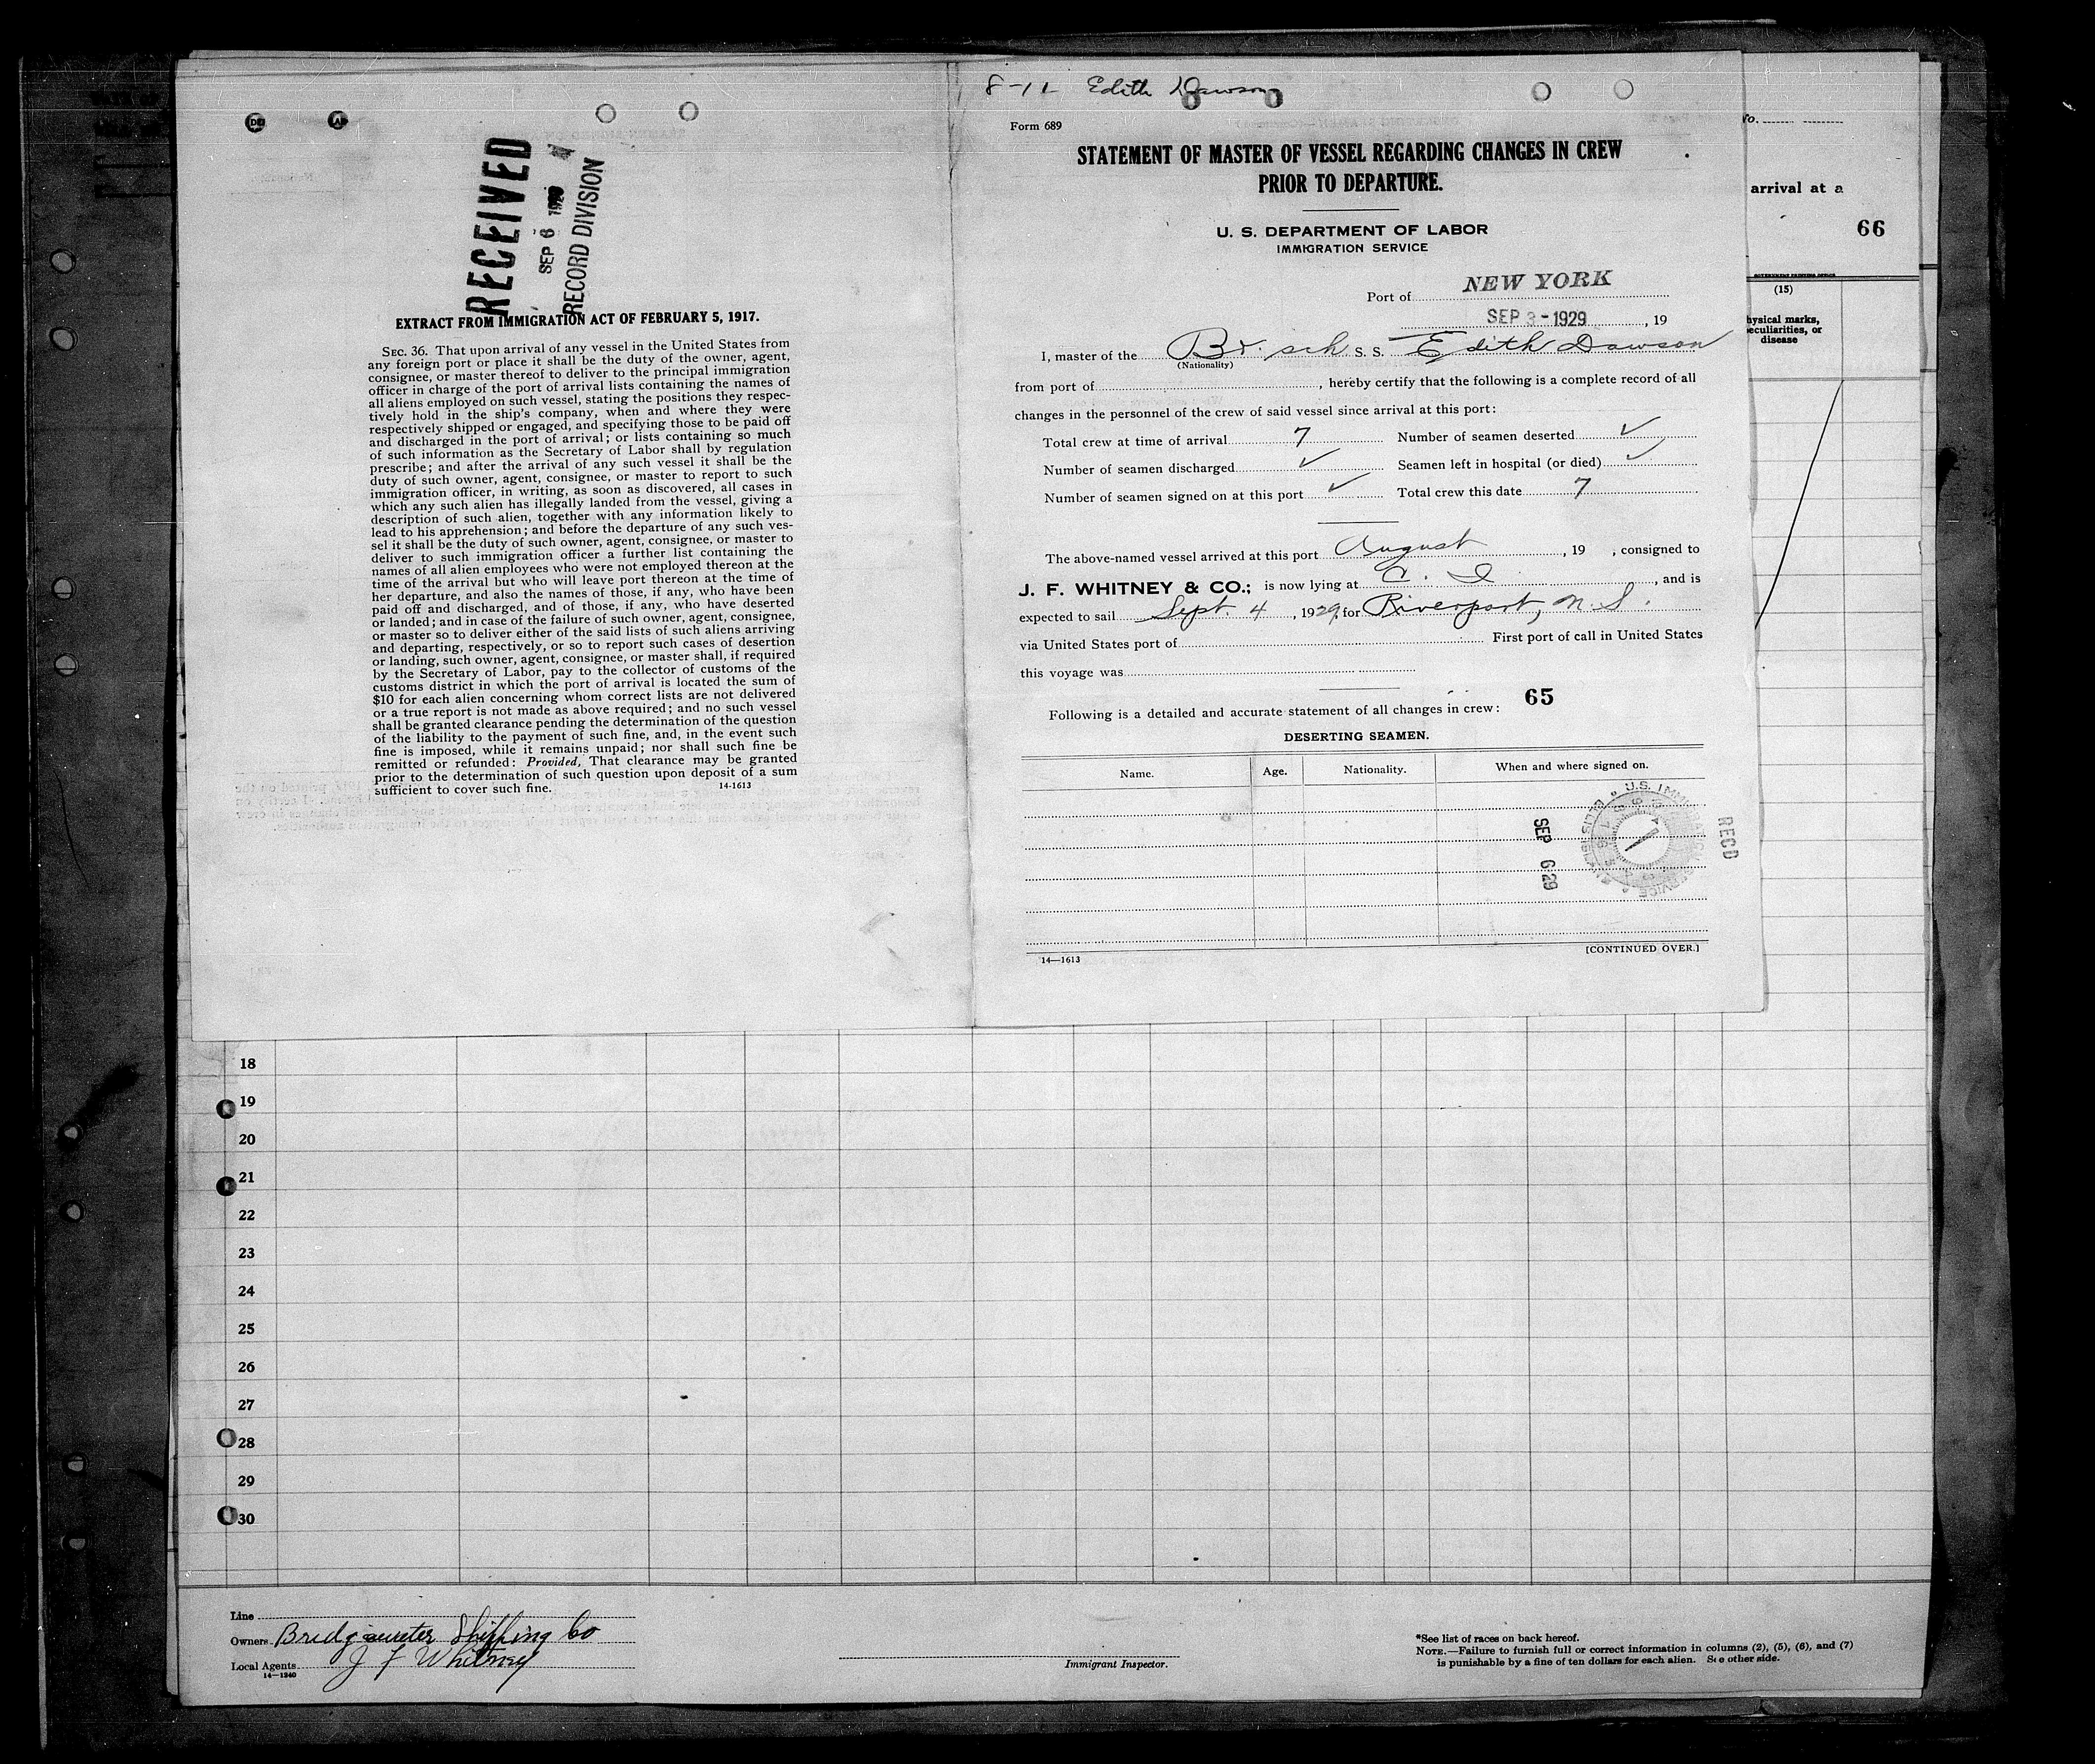 RECEIVED
SEP 6 1929
RECORD DIVISION
EXTRACT FROM IMMIGRATION ACT OF FEBRUARY 5, 1917.
SEC. 36. That upon arrival of any vessel in the United States from
any foreign port or place it shall be the duty of the owner, agent,
consignee, or master thereof to deliver to the principal immigration
officer in charge of the port of arrival lists containing the names of
all aliens employed on such vessel, stating the positions they respec-
tively hold in the ship's company, when and where they were
respectively shipped or engaged, and specifying those to be paid off
and discharged in the port of arrival; or lists containing so much
of such information as the Secretary of Labor shall by regulation
prescribe; and after the arrival of any such vessel it shall be the
duty of such owner, agent, consignee, or master to report to such
immigration officer, in writing, as soon as discovered, all cases in
which any such alien has illegally landed from the vessel, giving a
description of such alien, together with any information likely to
lead to his apprehension; and before the departure of any such ves-
sel it shall be the duty of such owner, agent, consignee, or master to
deliver to such immigration officer a further list containing the
names of all alien employees who were not employed thereon at the
time of the arrival but who will leave port thereon at the time of
her departure, and also the names of those, if any, who have been
paid off and discharged, and of those, if any, who have deserted
or landed; and in case of the failure of such owner, agent, consignee,
or master so to deliver either of the said lists of such aliens arriving
and departing, respectively, or so to report such cases of desertion
or landing, such owner, agent, consignee, or master shall, if required
by the Secretary of Labor, pay to the collector of customs of the
customs district in which the port of arrival is located the sum of
$10 for each alien concerning whom correct lists are not delivered
or a true report is not made as above required; and no such vessel
shall be granted clearance pending the determination of the question
of the liability to the payment of such fine, and, in the event such
fine is imposed, while it remains unpaid; nor shall such fine be
remitted or refunded: Provided, That clearance may be granted
prior to the determination of such question upon deposit of a sum
sufficient to cover such fine. 14-1613
8-11 Edith Dawson
Form 689
STATEMENT OF MASTER OF VESSEL REGARDING CHANGES IN CREW
PRIOR TO DEPARTURE.
U. S. DEPARTMENT OF LABOR
IMMIGRATION SERVICE
Port of NEW YORK
SEP 3 - 1929, 19
I, master of the Br. sch S. S. Edith Dawson
(Nationality)
from port of, hereby certify that the following is a complete record of all
changes in the personnel of the crew of said vessel since arrival at this port:
Total crew at time of arrival 7 Number of seamen deserted ✓
Number of seamen discharged ✓ Seamen left in hospital (or died) ✓
Number of seamen signed on at this port ✓ Total crew this date 7
The above-named vessel arrived at this port August, 19 , consigned to
J. F. WHITNEY & CO.; is now lying at C. I, and is
expected to sail Sept. 4, 1929, for Riverport, N. S.
via United States port of First port of call in United States
this voyage was
65
Following is a detailed and accurate statement of all changes in crew:
DESERTING SEAMEN.
Name. Age. Nationality. When and where signed on.
U.S. IMMIGRATION SERVICE
SEP 6 29
RECD
[CONTINUED OVER.]
14—1613
arrival at a
66
GOVERNMENT PRINTING OFFICE
(15)
hysical marks,
eculiarities, or
disease
18
19
20
21
22
23
24
25
26
27
28
29
30
Line
Owners Bridgewater Shipping Co
Local Agents J F Whitney
14—1240
Immigrant Inspector.
*See list of races on back hereof.
NOTE.—Failure to furnish full or correct information in columns (2), (5), (6), and (7)
is punishable by a fine of ten dollars for each alien. See other side.